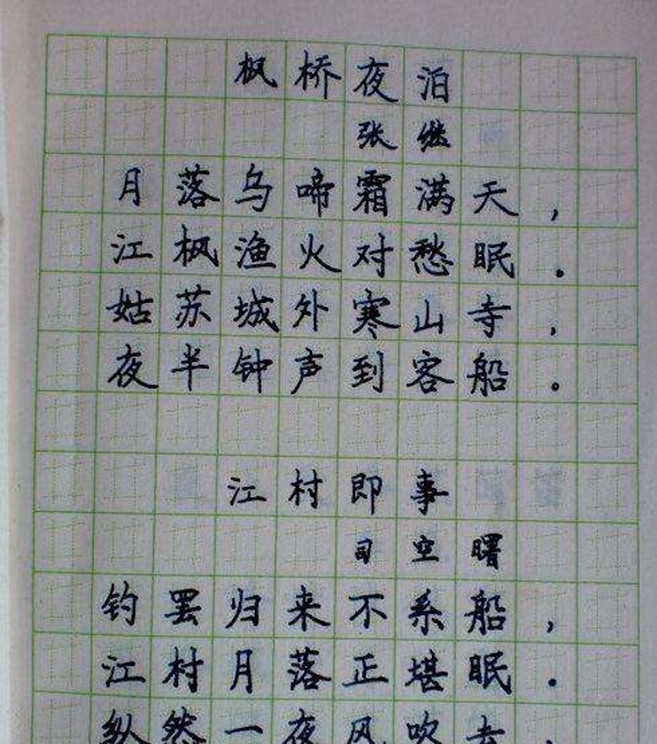 枫桥夜泊
张继
月落乌啼霜满天，
江枫渔火对愁眠。
姑苏城外寒山寺，
夜半钟声到客船。
江村即事
司空曙
钓罢归来不系船，
江村月落正堪眠。
纵然一夜风吹去，